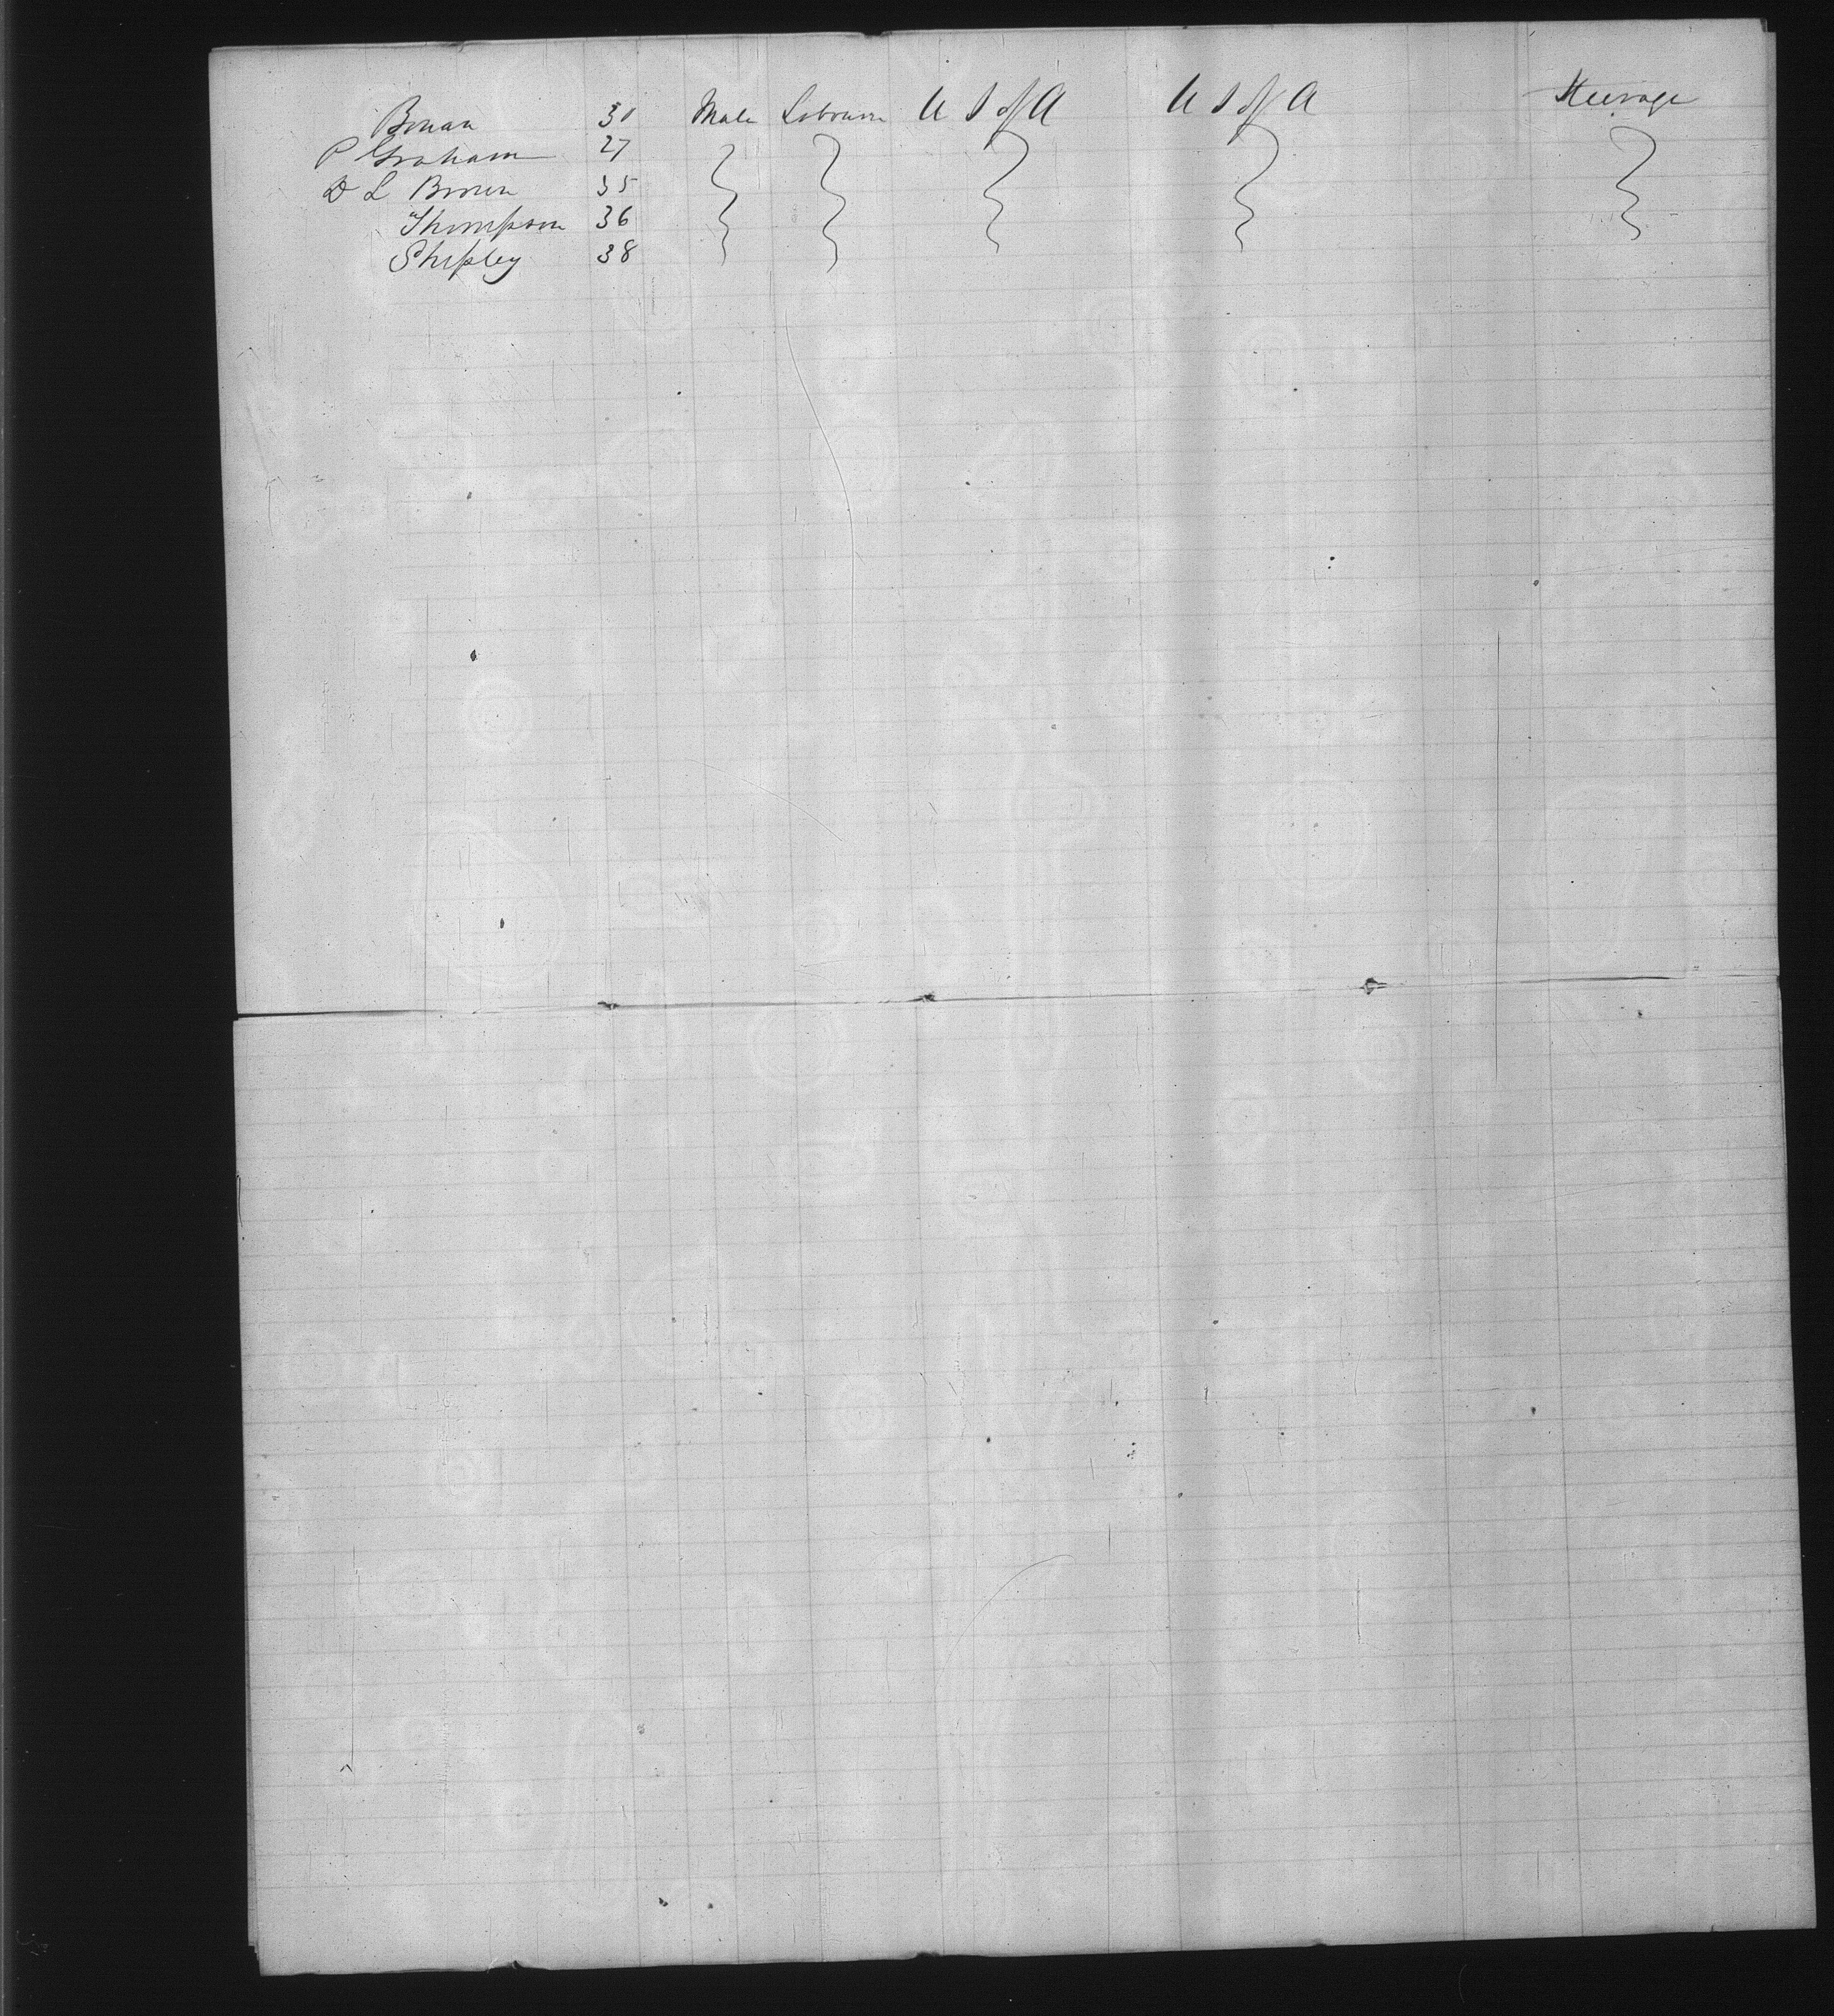 Bonan 30 Male Labourer U S of A U S of A Steerage
P Graham 27
D L Brown 35
Thompson 36
Shipley 38